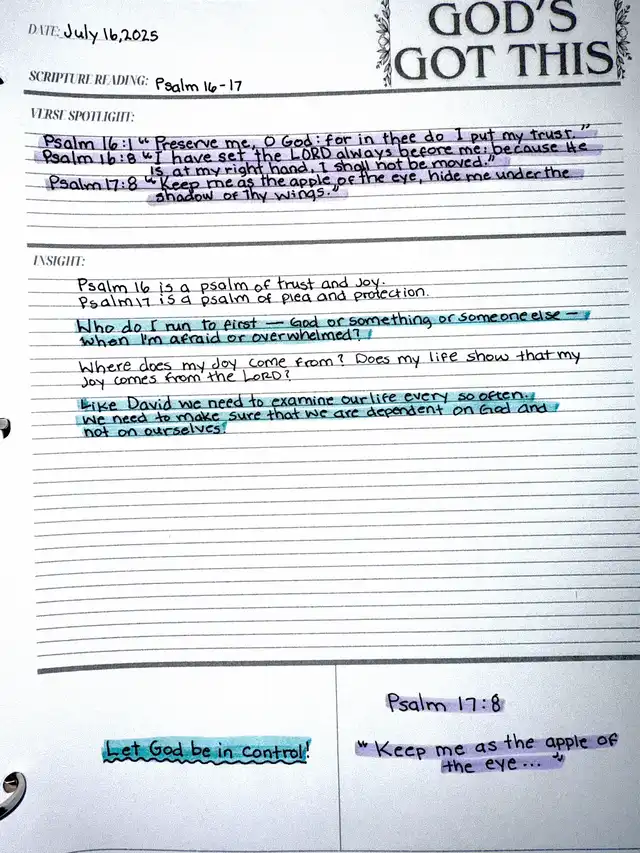 GOD'S
GOT THIS
DATE: July 16, 2025
SCRIPTURE READING: Psalm 16-17
VERSE SPOTLIGHT:
Psalm 16:1 "Preserve me, O God: for in thee do I put my trust."
Psalm 16:8 "I have set the LORD always before me: because He
is at my right hand, I shall not be moved."
Psalm 17:8 "Keep me as the apple of the eye, hide me under the
shadow of thy wings."
INSIGHT:
Psalm 16 is a psalm of trust and joy.
Psalm 17 is a psalm of plea and protection.
Who do I run to first — God or something or someone else —
when I'm afraid or overwhelmed?
Where does my joy come from? Does my life show that my
joy comes from the LORD?
Like David we need to examine our life every so often.
We need to make sure that we are dependent on God and
not on ourselves!
Let God be in control!
Psalm 17:8
"Keep me as the apple of
the eye..."